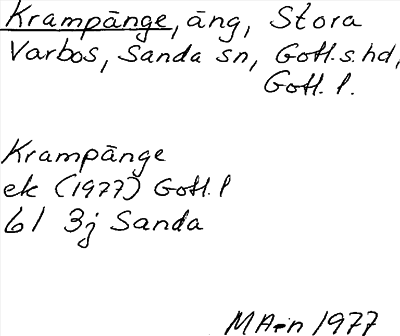 Krampänge, äng, Stora
Varbos, Sanda sn, Gotl. s. hd,
Gotl. l.
Krampänge
ek (1977) Gotl. l
61 3j Sanda
MAin 1977